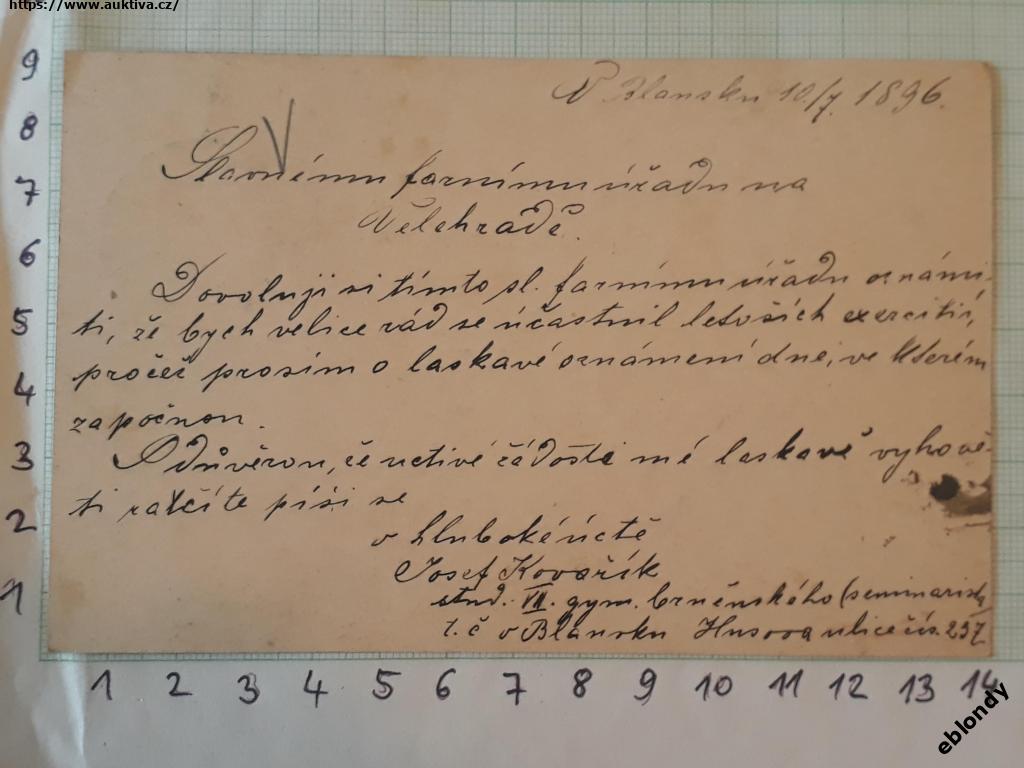 https://www.auktiva.cz/
V Blansku 10/7. 1896.
Slavnému farnímu úřadu na
Velehradě.
Dovoluji si tímto sl. farnímu úřadu oznámi-
ti, že bych velice rád se účastnil letoších exercitií,
pročež prosím o laskavé oznámení dne, ve kterém
započnou.
S důvěrou, že uctivé žádosti mé laskavě vyhově-
ti ráčíte píši se
v hluboké úctě
Josef Kovařík
stud. VII. gym. brněnského (seminarista)
t. č v Blansku Husova ulice čís. 237
9
8
7
6
5
4
3
2
1
1 2 3 4 5 6 7 8 9 10 11 12 13 14
eblondy